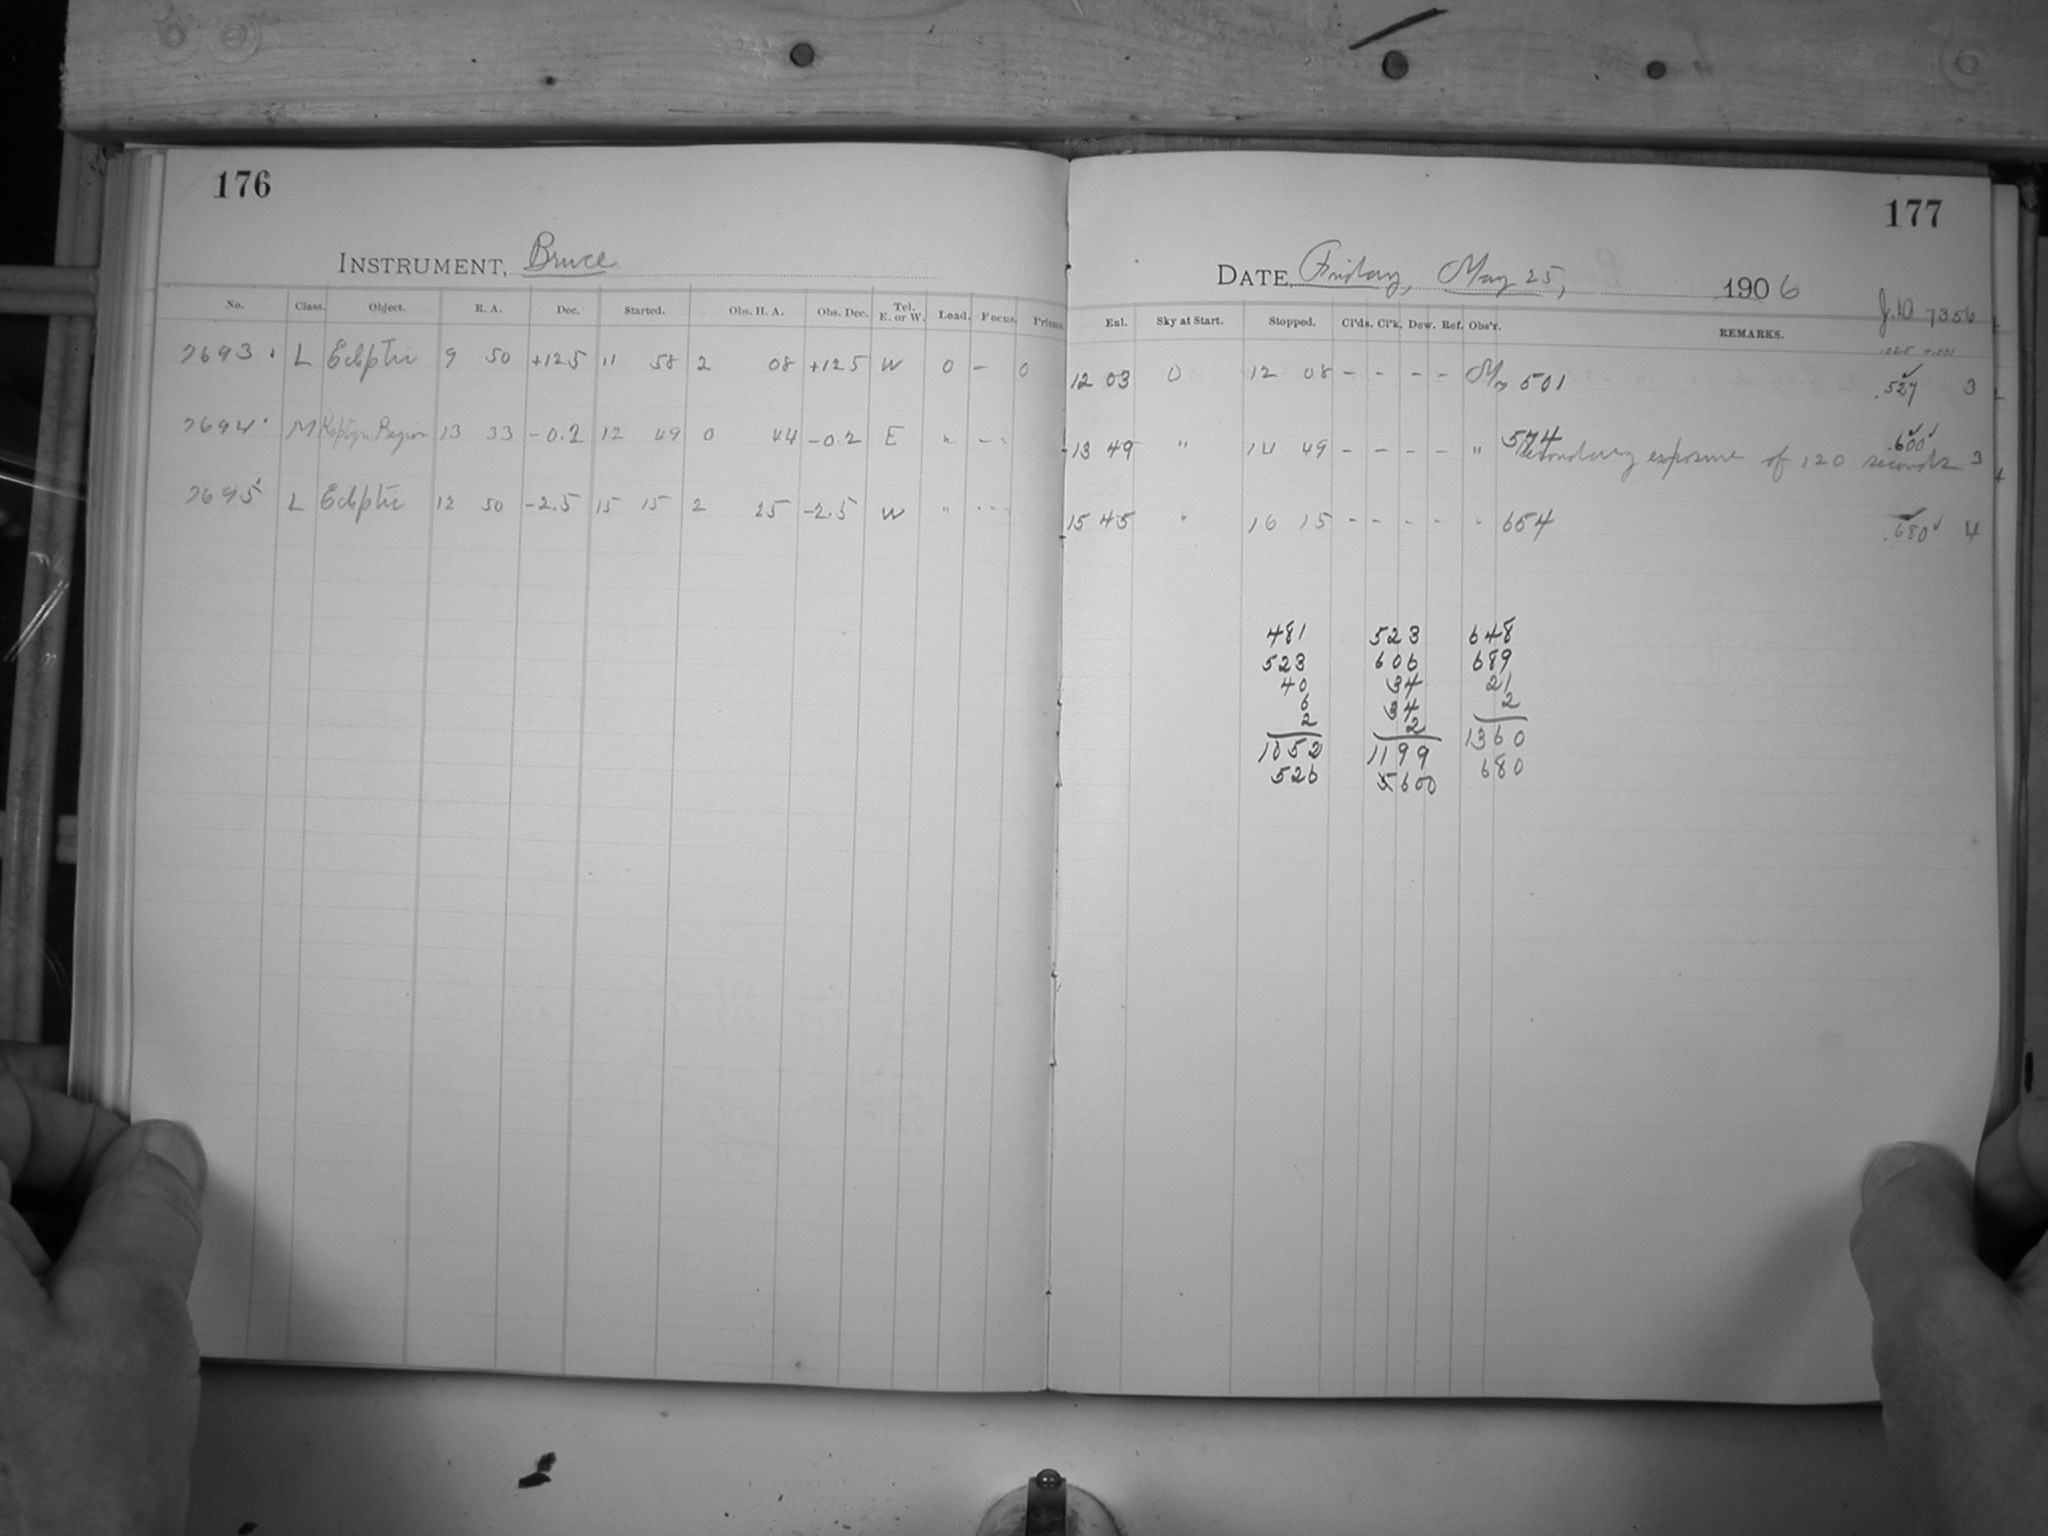 176
INSTRUMENT, Bruce
No. Class. Object. R. A. Dec. Started. Obs. H. A. Obs. Dec. Tel. E. or W. Load. Focus. Prisms.
7693 L Ecliptic 9 50 +12.5 11 58 2 08 +12.5 W 0 - 0
7694 M Kaptyn Region 13 33 -0.2 12 49 0 44 -0.2 E " - -
7695 L Ecliptic 12 50 -2.5 15 15 2 25 -2.5 W " - - -
177
DATE, Friday, May 25, 1906
J.D 7356
Enl. Sky at Start. Stopped. Cl'ds. Cl'k. Dew. Ref. Obs'r. REMARKS.
.025 +.001
12 03 0 12 08 - - - - 501 .527 3
13 49 " 14 49 - - - - " 574 .600 3
Secondary exposure of 120 seconds
15 45 " 16 15 - - - - " 654 .680 4
481 523 648
523 606 689
40 34 21
6 34 2
2 2
1052 1199 1360
526 5600 680